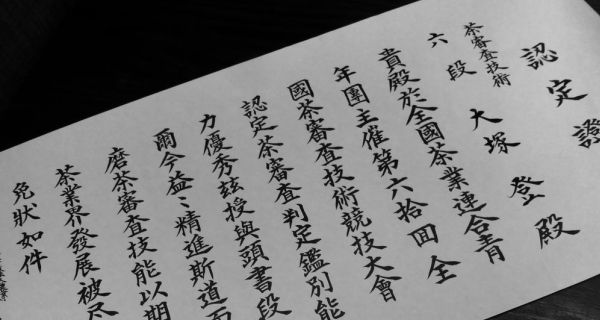 認定證
茶審査技術
六段 大塚登殿
貴殿於全國茶業連合青
年團主催第六拾回全
國茶審査技術競技大會
認定茶審査判定鑑別能
力優秀茲授與頭書段
爾今益〻精進斯道
磨茶審査技能以期
茶業界發展被尽
免狀如件